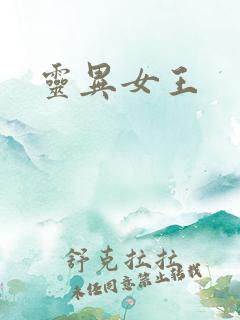 靈異女王
舒克拉拉
未經同意禁止轉載